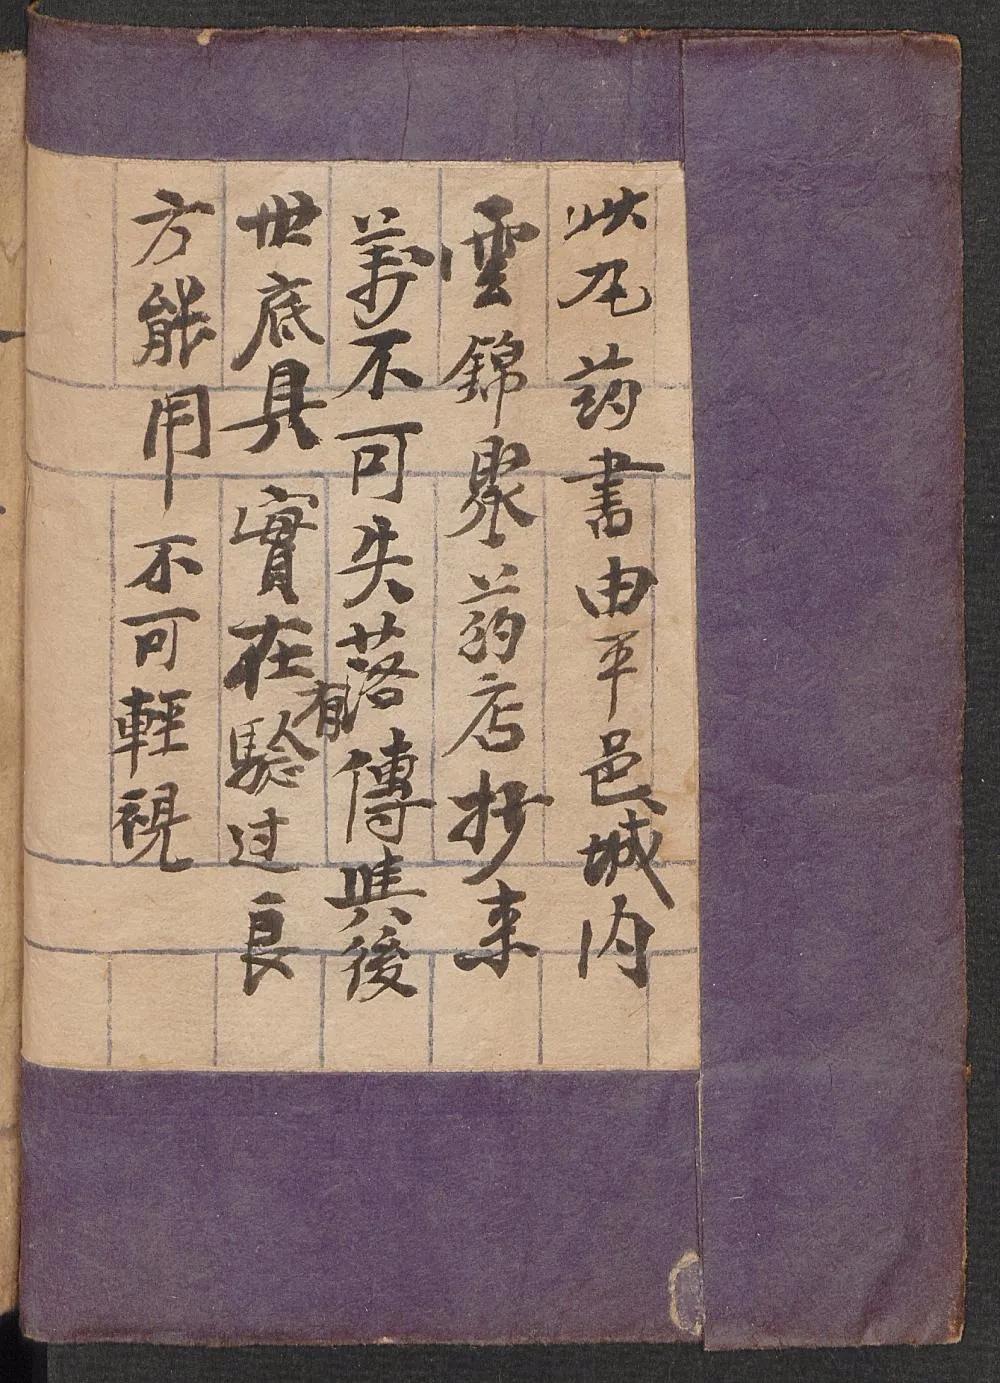 此丸药書由平邑城内
雲錦聚药店抄来
萬不可失落傳與後
世底具實在有驗过良
方能用不可輕視